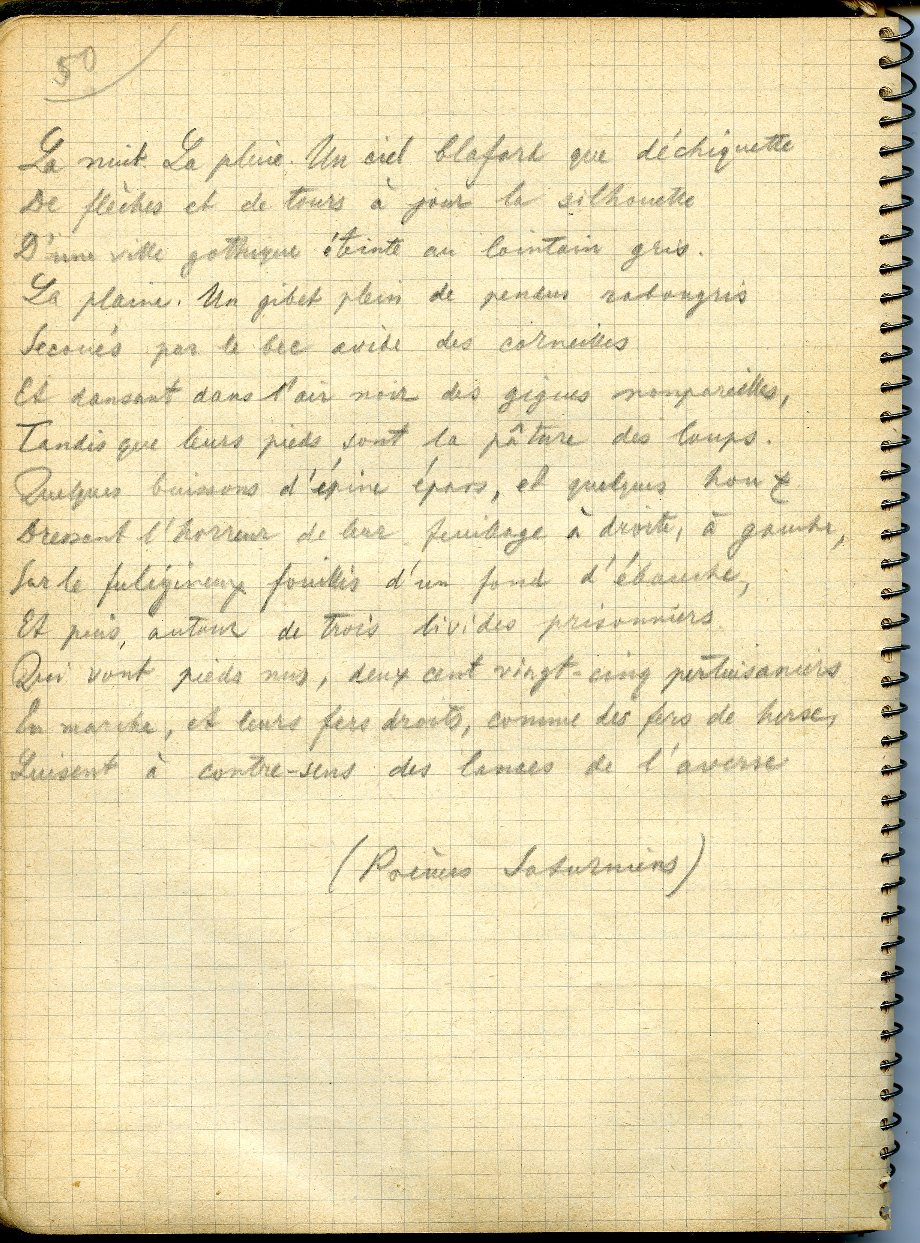 50
La nuit. La pluie. Un ciel blafard que déchiquette
De flèches et de tours à jour la silhouette
D'une ville gothique éteinte au lointain gris.
La plaine. Un gibet plein de pendus rabougris
Secoués par le bec avide des corneilles
Et dansant dans l'air noir des gigues nonpareilles,
Tandis que leurs pieds sont la pâture des loups.
Quelques buissons d'épine épars, et quelques houx
Dressent l'horreur de leur feuillage à droite, à gauche,
Sur le fuligineux fouillis d'un fond d'ébauche,
Et puis, autour de trois livides prisonniers
Qui vont pieds nus, deux cent vingt-cinq pertuisaniers
En marche, et leurs fers droits, comme des fers de herse,
Luisent à contre-sens des lances de l'averse
(Poèmes Saturniens)